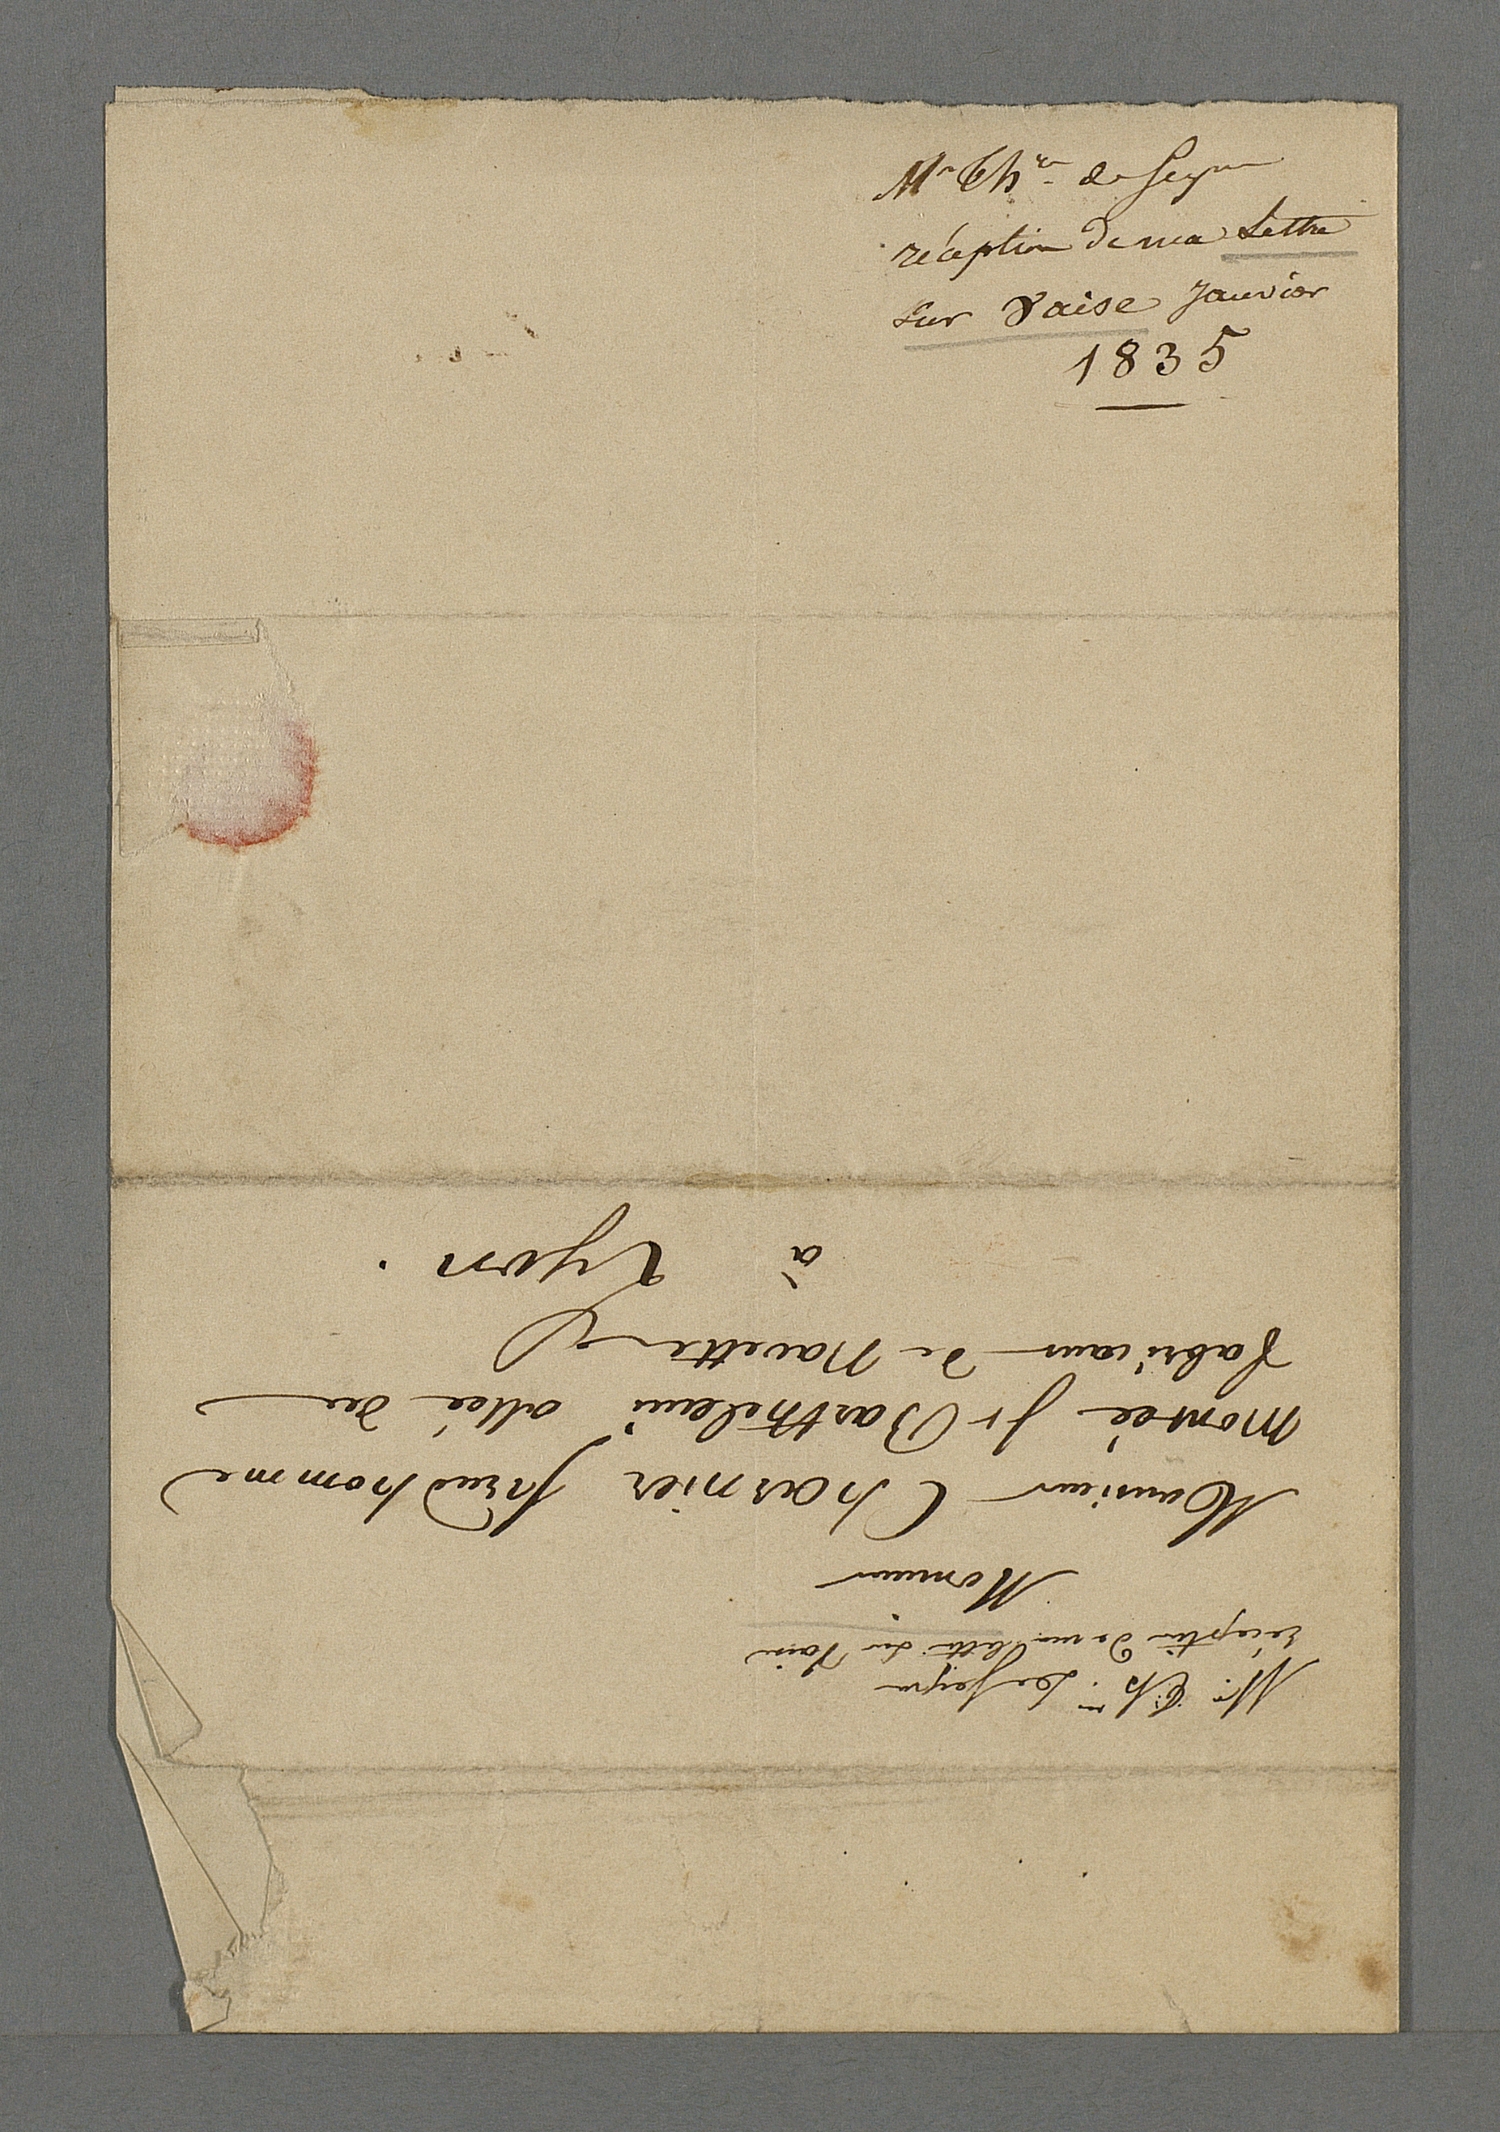 Mr Chr de
réception de ma Lettre
sur Vaise Janvier
1835
Mr Chr.
réception de ma lettre sur Vaise
Monsieur
Monsieur Charnier prud'homme
montée St Barthelemi allée du
fabricant de Navette
à Lyon.